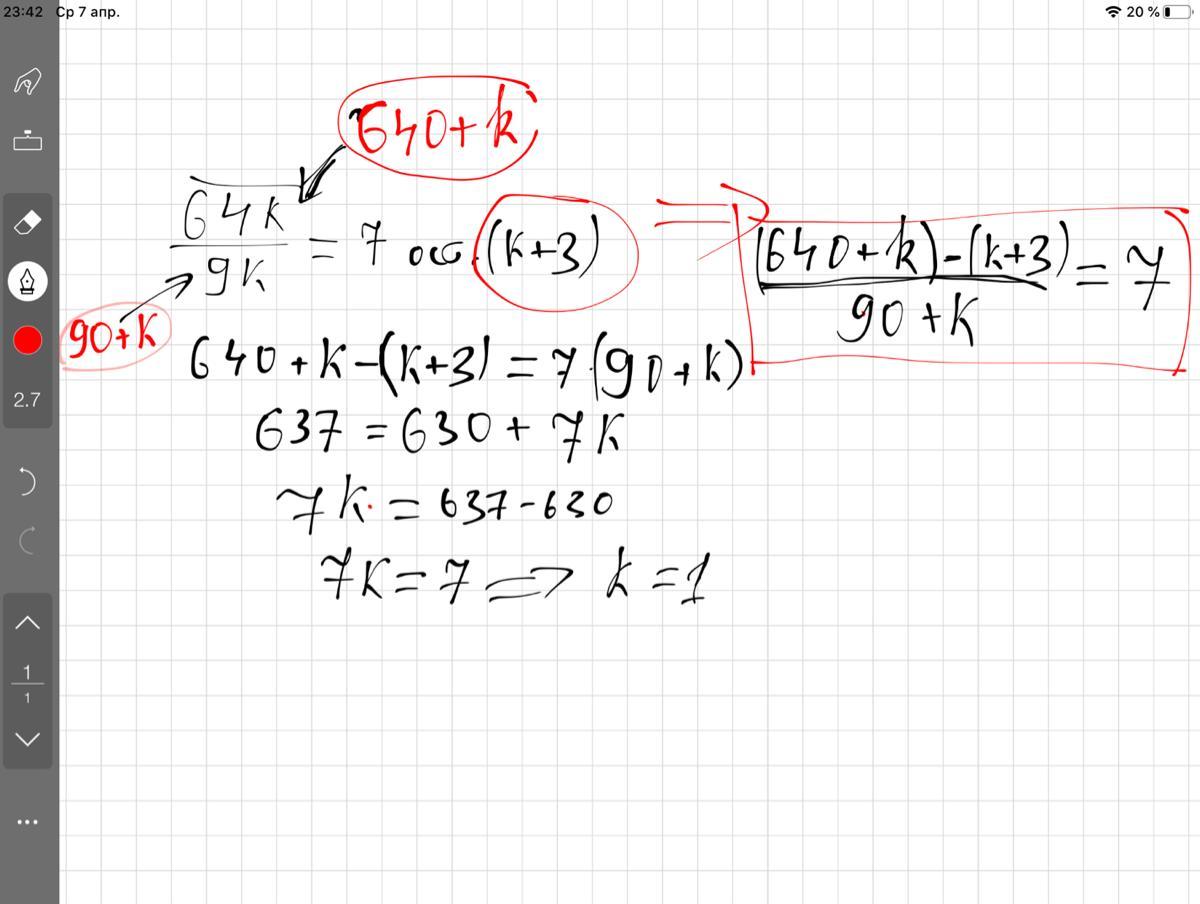 23:42 Ср 7 апр.
20 %
640+k
64k
= 7 ост.(k+3)
9k
90+k
(640+k)-(k+3)
= 7
90+k
640+k-(k+3)=7·(90+k)
637=630+7k
7k.=637-630
7k=7=>k=1
2.7
1
1
...